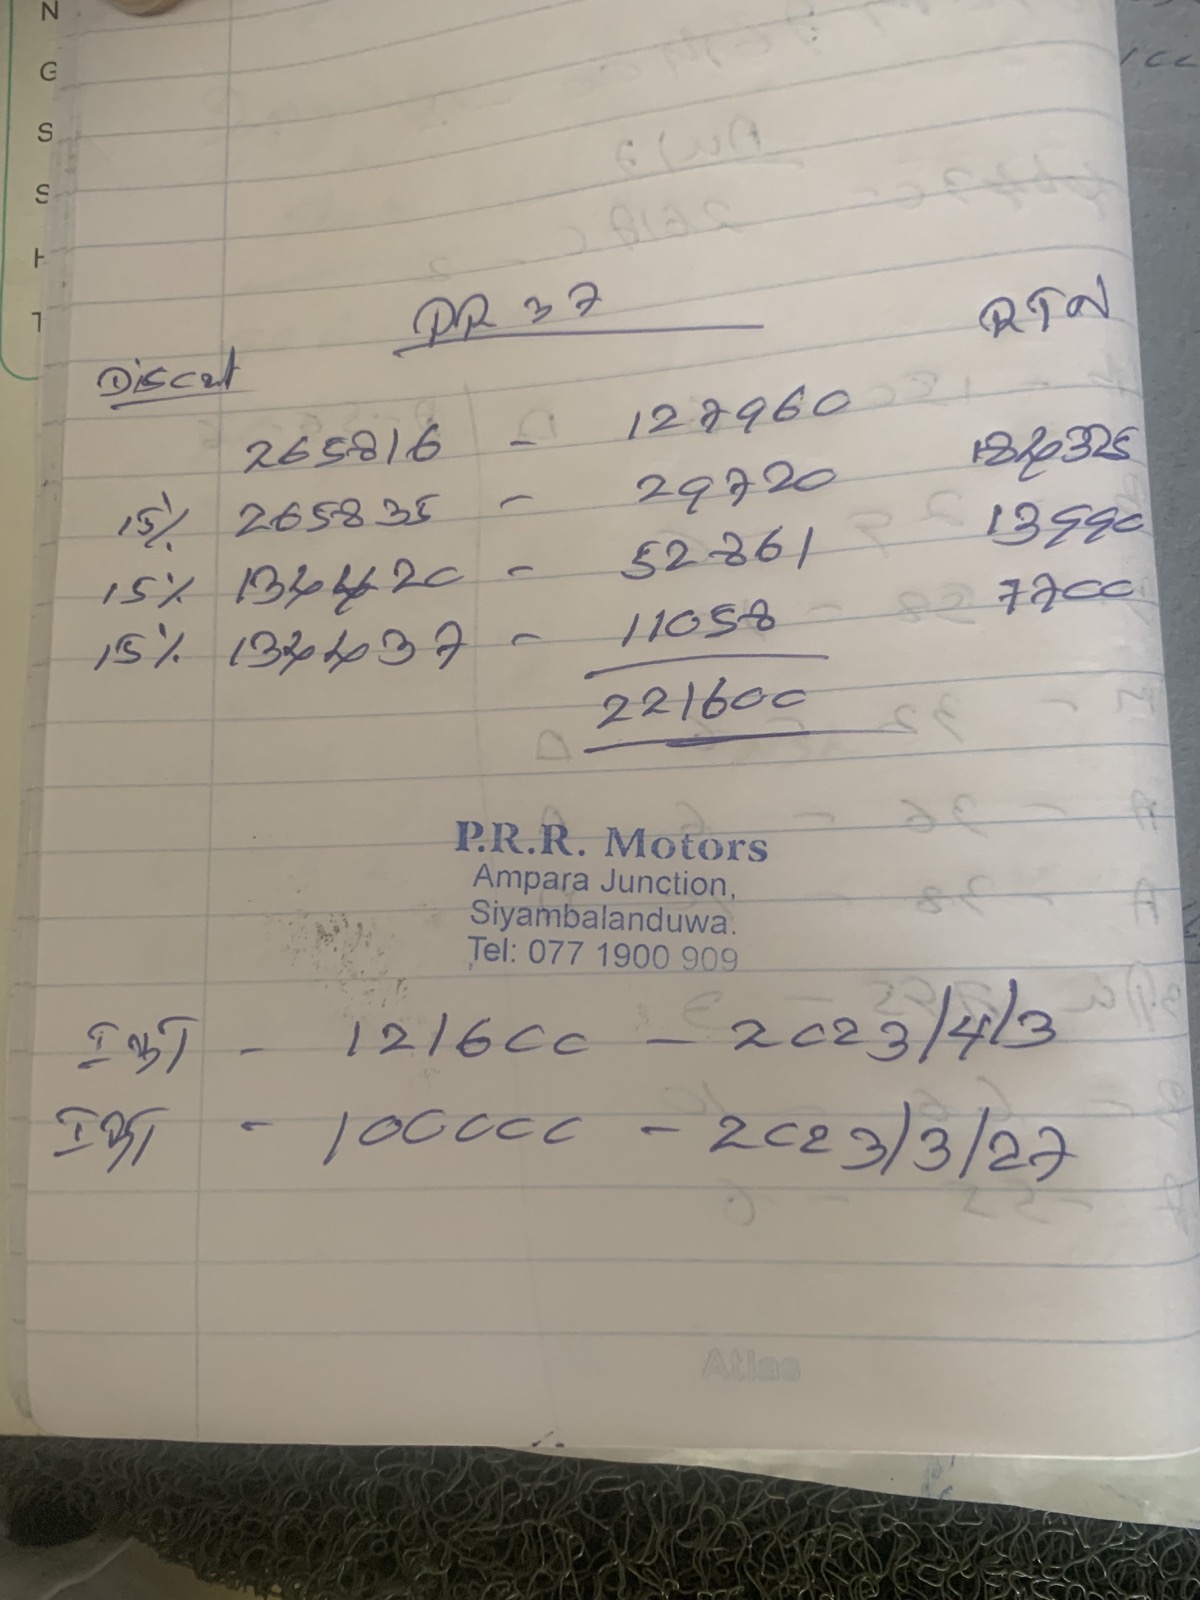 N
G
S
S
H
T
PR 37 RTN
265816 - 127960
15% 265835 - 29720 184325
15% 134420 - 52861 13990
15% 134437 - 11058 7700
221600
P.R.R. Motors
Ampara Junction,
Siyambalanduwa.
Tel: 077 1900 909
IBT - 121600 - 2023/4/3
IBT - 100000 - 2023/3/27
Atlas